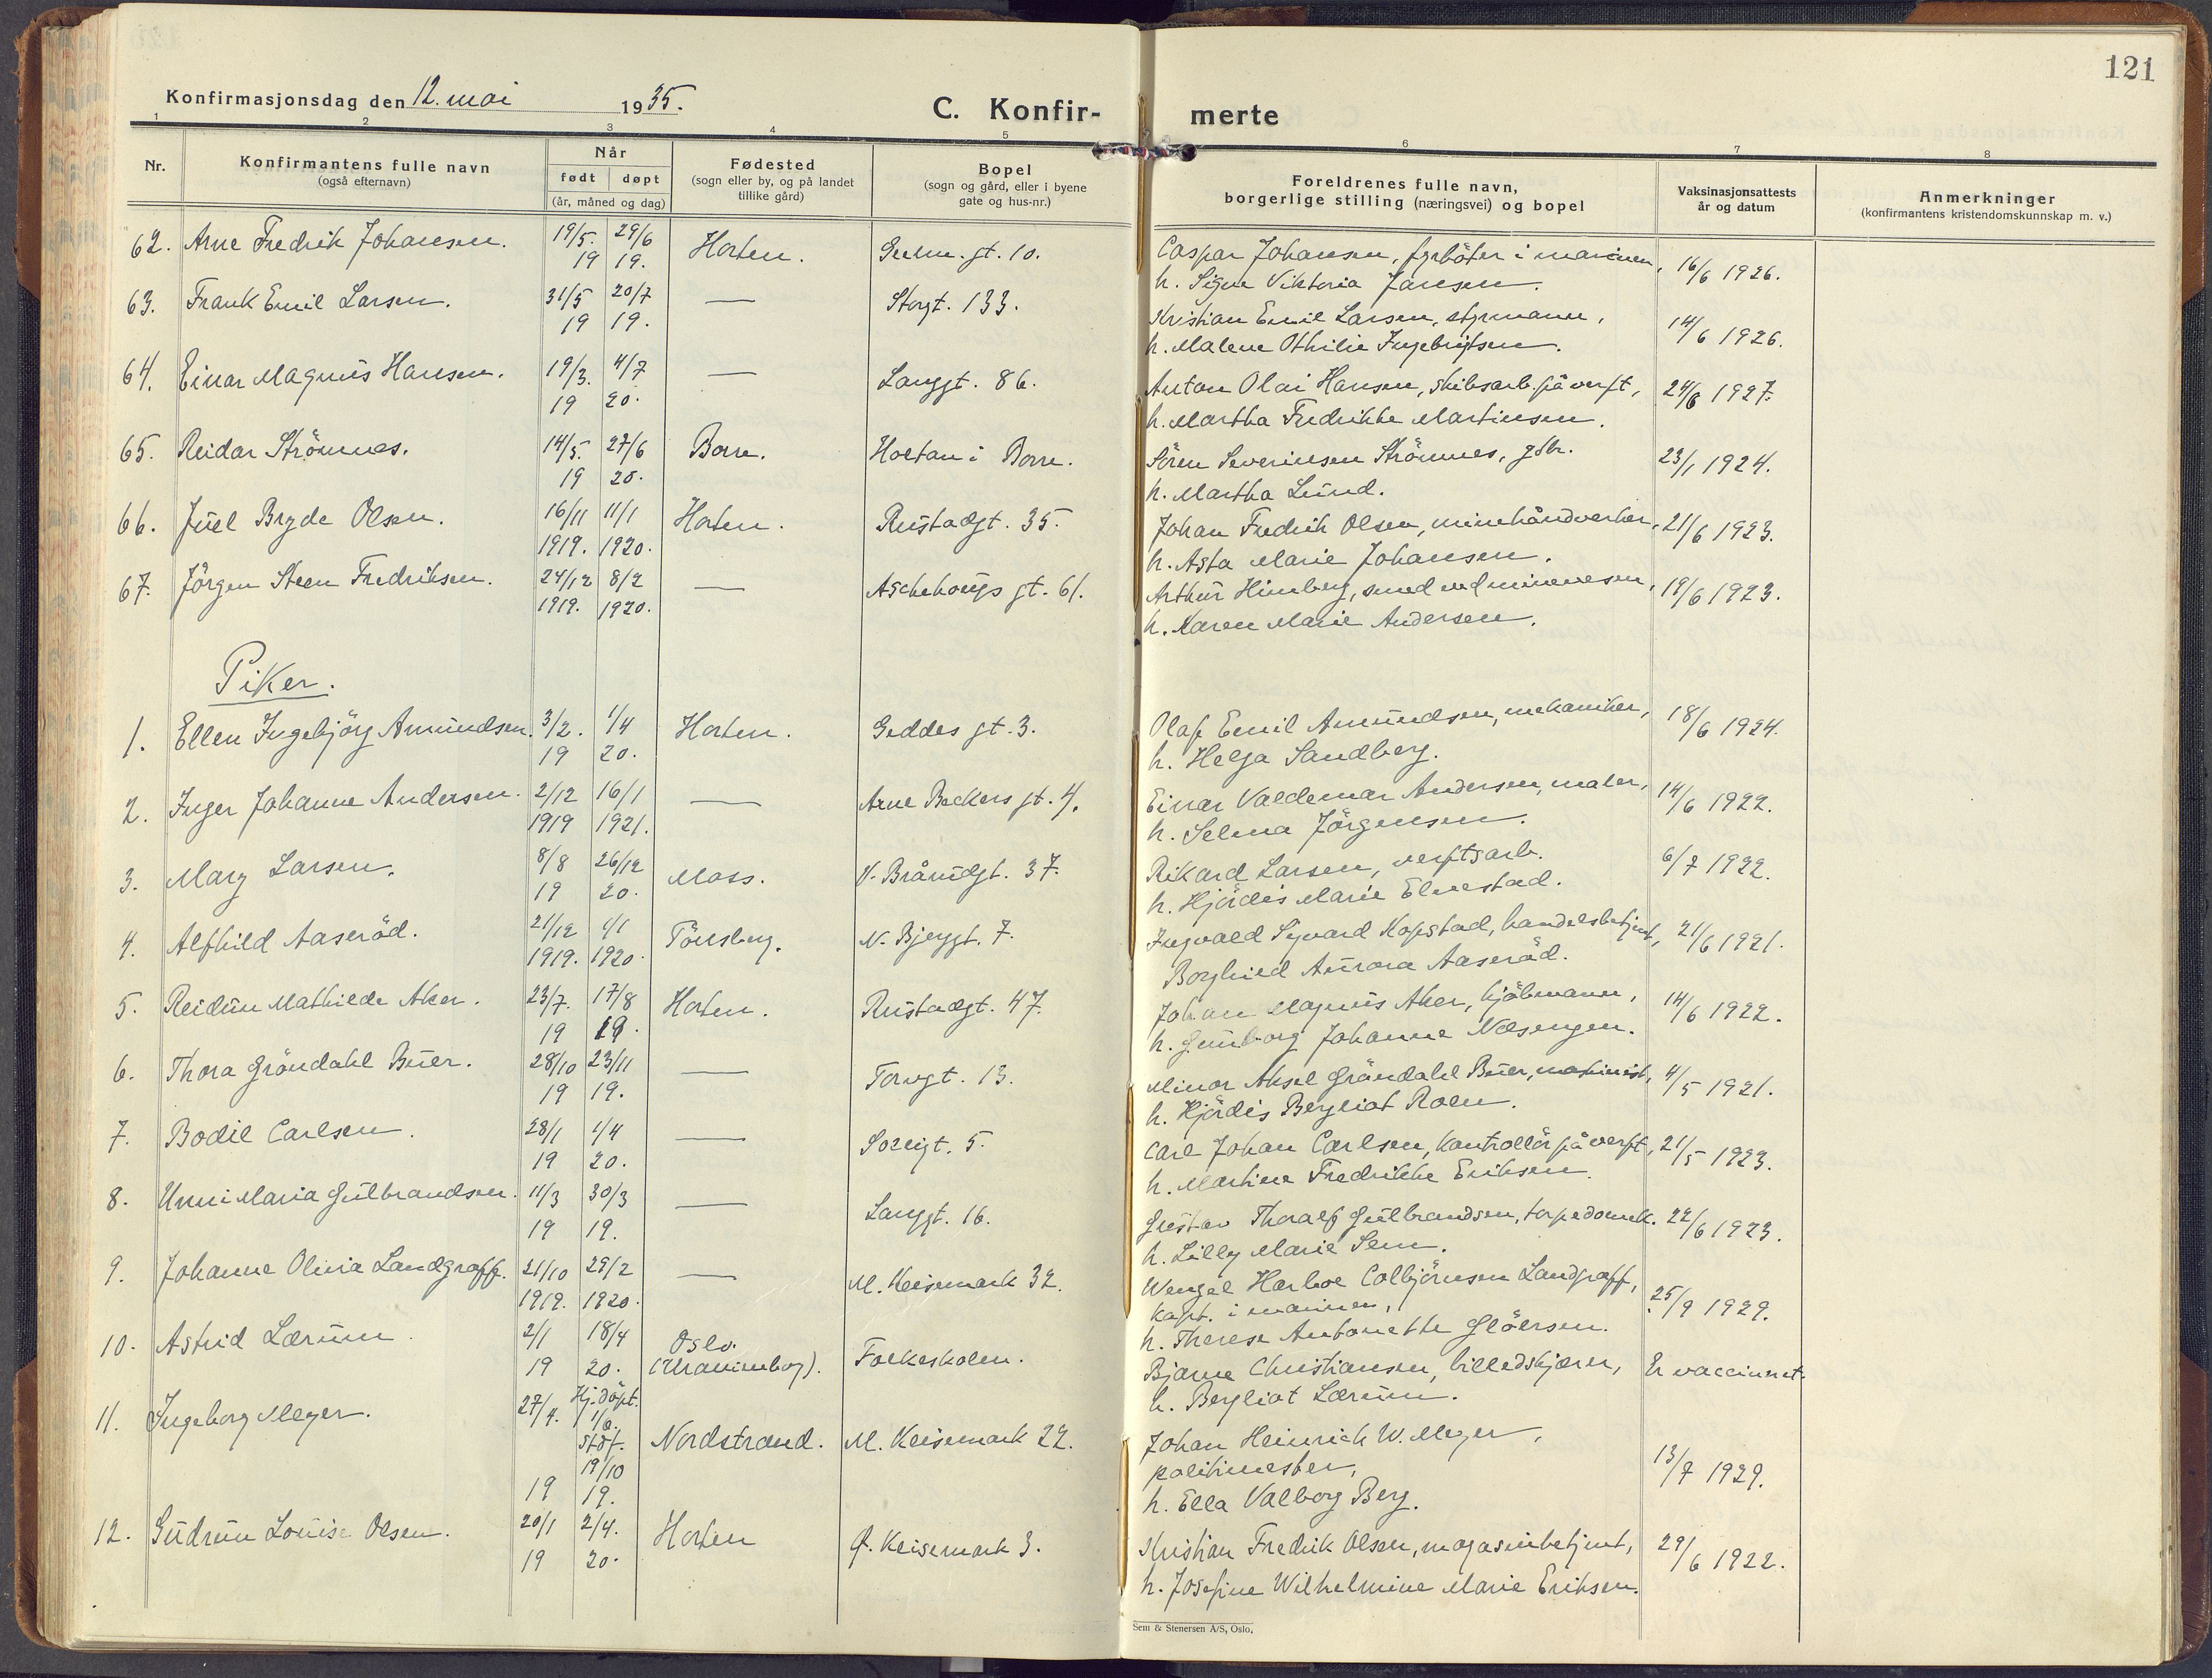 121
Konfirmasjonsdag den 12. mai 1935.
C. Konfir- merte
1 2 3 4 5 6 7 8
Nr.
Konfirmantens fulle navn
(også efternavn)
Når
født døpt
(år, måned og dag)
Fødested
(sogn eller by, og på landet
tillike gård)
Bopel
(sogn og gård, eller i byene
gate og hus-nr.)
Foreldrenes fulle navn,
borgerlige stilling (næringsvei) og bopel
Vaksinasjonsattests
år og datum
Anmerkninger
(konfirmantens kristendomskunnskap m. v.)
62. Arne Fredrik Johansen. 19/5. 29/6 Horten. gt. 10. Caspar Johansen, fyrböter i marinen, 16/6 1926.
19 19. h. Signe Viktoria Jansen.
63. Frank Emil Larsen. 31/5 20/7 — Storgt. 133. Kristian Emil Larsen, styrmann, 14/6 1926.
19 19. h. Malene Othilie Ingebrigtsen.
64. Einar Magnus Hansen. 19/3. 4/7 — Langgt. 86. Anton Olai Hansen, skibsarb. på verft, 24/6 1927.
19 20. h. Martha Fredrikke Martinsen.
65. Reidar Strömnes. 14/5. 27/6 Borre. Holtan i Borre. Sören Severinsen Strömnes, gdbr. 23/1 1924.
19 20. h. Martha Lund.
66. Juel Bryde Olsen. 16/11 11/1 Horten. Rustadgt. 35. Johan Fredrik Olsen, minehåndverker, 21/6 1923.
1919. 1920. h. Asta Marie Johansen.
67. Jörgen Steen Fredriksen. 24/12 8/2 — Aschehougs gt. 61. Arthur Himberg, smed ved minevesen, 19/6 1923.
1919. 1920. h. Karen Marie Andersen.
Piker.
1. Ellen Ingebjörg Amundsen. 3/2. 1/4 Horten. Geddes gt. 3. Olaf Emil Amundsen, mekaniker, 18/6 1924.
19 20. h. Helga Sandberg.
2. Inger Johanne Andersen. 2/12 16/1 — Arne Backers gt. 4. Einar Valdemar Andersen, maler, 14/6 1922.
1919 1921. h. Selma Jörgensen.
3. Mary Larsen. 8/8 26/12 Moss. V. Bråroudgt. 37. Rikard Larsen, verftsarb. 6/7 1922.
19 20. h. Hjördis Marie Elnestad.
4. Alfhild Aaseröd. 21/12 4/1 Tönsberg. N. Bjerggt. 7. Ingvald Sigvard Kopstad, handelsbetjent, 21/6 1921.
1919. 1920. Borghild Aurora Aaseröd.
5. Reidun Mathilde Aker. 23/7. 17/8 Horten. Rustadgt. 47. Johan Magnus Aker, kjöbmann, 14/6 1922.
19 19. h. Gunborg Johanne Næsengen.
6. Thora Gröndahl Buer. 28/10 23/11 — Torvgt. 13. Minor Aksel Gröndahl Buer, maskinist, 4/5 1921.
19 19. h. Hjördis Bergliot Roen.
7. Bodil Carlsen. 28/1 4/4 — Soligt. 5. Carl Johan Carlsen, kontrollör på verft, 21/5 1923.
19 20. h. Martine Fredrikke Eriksen.
8. Unni Maria Gulbrandsen. 11/3 30/3 — Langgt. 16. Gustav Thoralf Gulbrandsen, torpedomek. 22/6 1923.
19 19. h. Lilly Marie Sem.
9. Johanne Olivia Landgraff. 21/10 29/2 — M. Keisemark 32. Wenzel Harboe Colbjörnsen Landgraff, 25/9 1929.
1919. 1920. kapt. i marinen,
h. Therese Antonette Glöersen.
10. Astrid Lærum. 2/1 18/4 Oslo. Folkeskolen. Bjarne Christiansen, billedskjærer, Er vaccinert.
19 20. (Uranienborg). h. Bergliot Lærum.
11. Ingeborg Meyer. 27/4. Hj. döpt. Nordstrand. M. Keisemark 22. Johan Heinrich W. Meyer, 13/7 1929.
stdf. politimester,
19/10
19 19. h. Ella Valborg Berg.
12. Gudrun Louise Olsen. 20/1 2/4. Horten Ø. Keisemark 3. Kristian Fredrik Olsen, magasinbetjent, 29/6 1922.
19 20. h. Josefine Wilhelmine Marie Eriksen.
Sem & Stenersen A/S, Oslo.